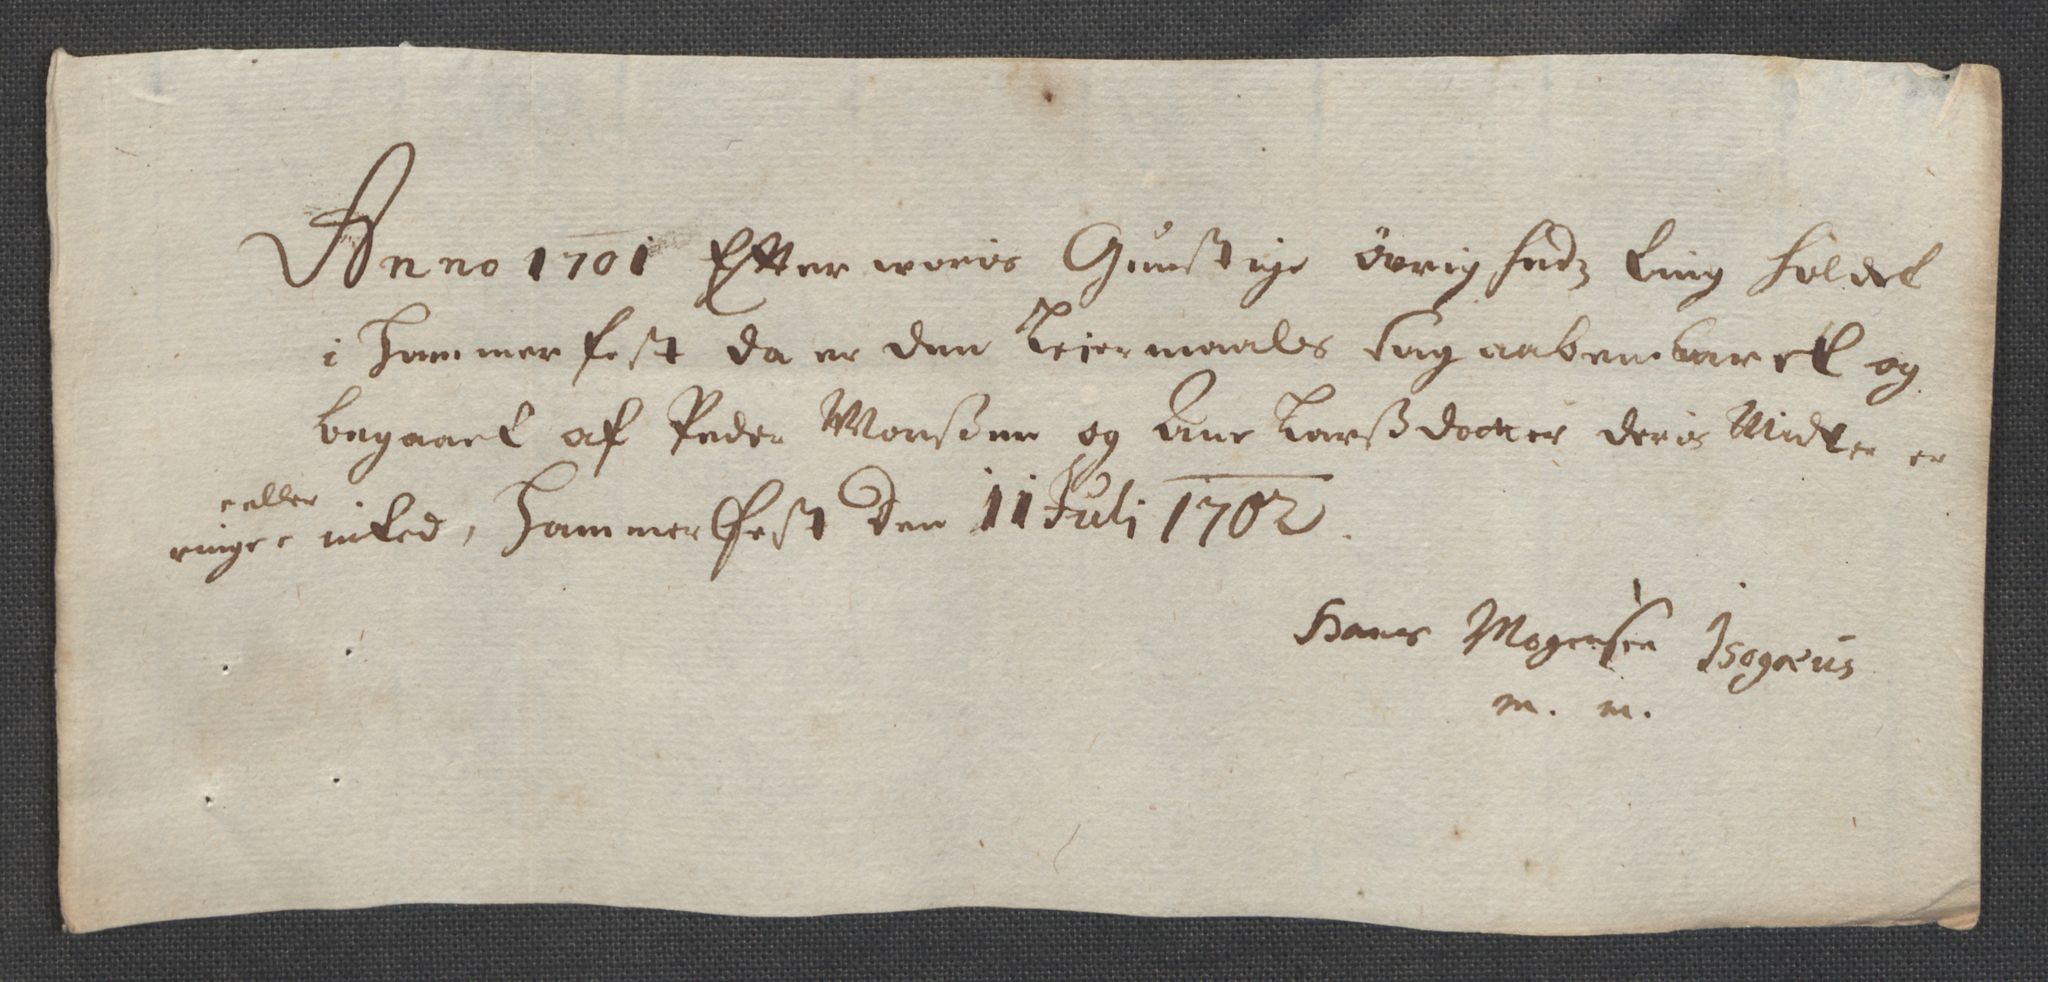 Anno 1701 Efter woris Gunstige Øvrighedz ting holdet
i Hammerfest da er den Leiermaals sag aabenbaret og
begaaet af Peder Monßen og Ane Larßdotter deris Midler er
ringe eller inted, Hammerfest den 11 Juli 1702.
Hans Mogensen Isogæus
m. m.